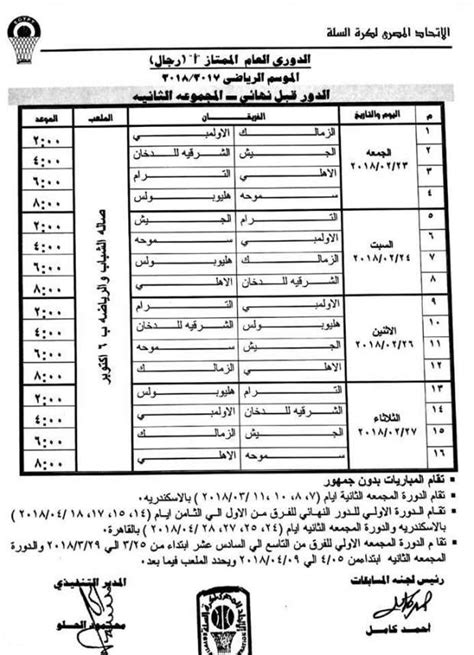 الإتحاد المصرى لكرة السلة
الدوري العام الممتاز "أ" (رجال)
الموسم الرياضي ٢٠١٨/٢٠١٧
الدور قبل نهائي – المجموعه الثانيه
م اليوم والتاريخ الفريقان الملعب الموعد
الجمعه ٢٠١٨/٠٢/٢٣
صاله الشباب والرياضه ب ٦ اكتوبر
١ الزمالك الاولمبي ٢:٠٠
٢ الجيش الشرقيه للدخان ٤:٠٠
٣ الاهلي الترام ٦:٠٠
٤ سموحه هليوبولس ٨:٠٠
السبت ٢٠١٨/٠٢/٢٤
٥ الترام الجيش ٢:٠٠
٦ الاولمبي سموحه ٤:٠٠
٧ الزمالك هليوبولس ٦:٠٠
٨ الشرقيه للدخان الاهلي ٨:٠٠
الاثنين ٢٠١٨/٠٢/٢٦
٩ الاولمبي الترام ٢:٠٠
١٠ هليوبولس الشرقيه للدخان ٤:٠٠
١١ الجيش سموحه ٦:٠٠
١٢ الاهلي الزمالك ٨:٠٠
الثلاثاء ٢٠١٨/٠٢/٢٧
١٣ الترام هليوبولس ٢:٠٠
١٤ الشرقيه للدخان الاولمبي ٤:٠٠
١٥ الجيش الزمالك ٦:٠٠
١٦ سموحه الاهلي ٨:٠٠
• تقام المباريات بدون جمهور
• تقام الدورة المجمعه الثانية ايام (٧، ٨، ١٠، ١١ /٢٠١٨/٠٣) بالاسكندريه.
• تقام الدورة الاولي للدور النهائي للفرق من الاول الي الثامن ايام (١٤، ١٥، ١٧، ١٨ /٢٠١٨/٠٤)
بالاسكندريه والدورة المجمعه الثانيه ايام (٢٤، ٢٥، ٢٧، ٢٨ /٢٠١٨/٠٤) بالقاهرة.
• تقام الدورة المجمعه الاولي للفرق من التاسع الي السادس عشر ابتداء من ٣/٢٥ الي ٢٠١٨/٣/٢٩ والدورة
المجمعه الثانيه ابتداءمن ٤/٠٥ الي ٢٠١٨/٠٤/٠٩ ويحدد الملعب فيما بعد.
رئيس لجنه المسابقات المدير التنفيذي
أحمد كامل محمود الحلو